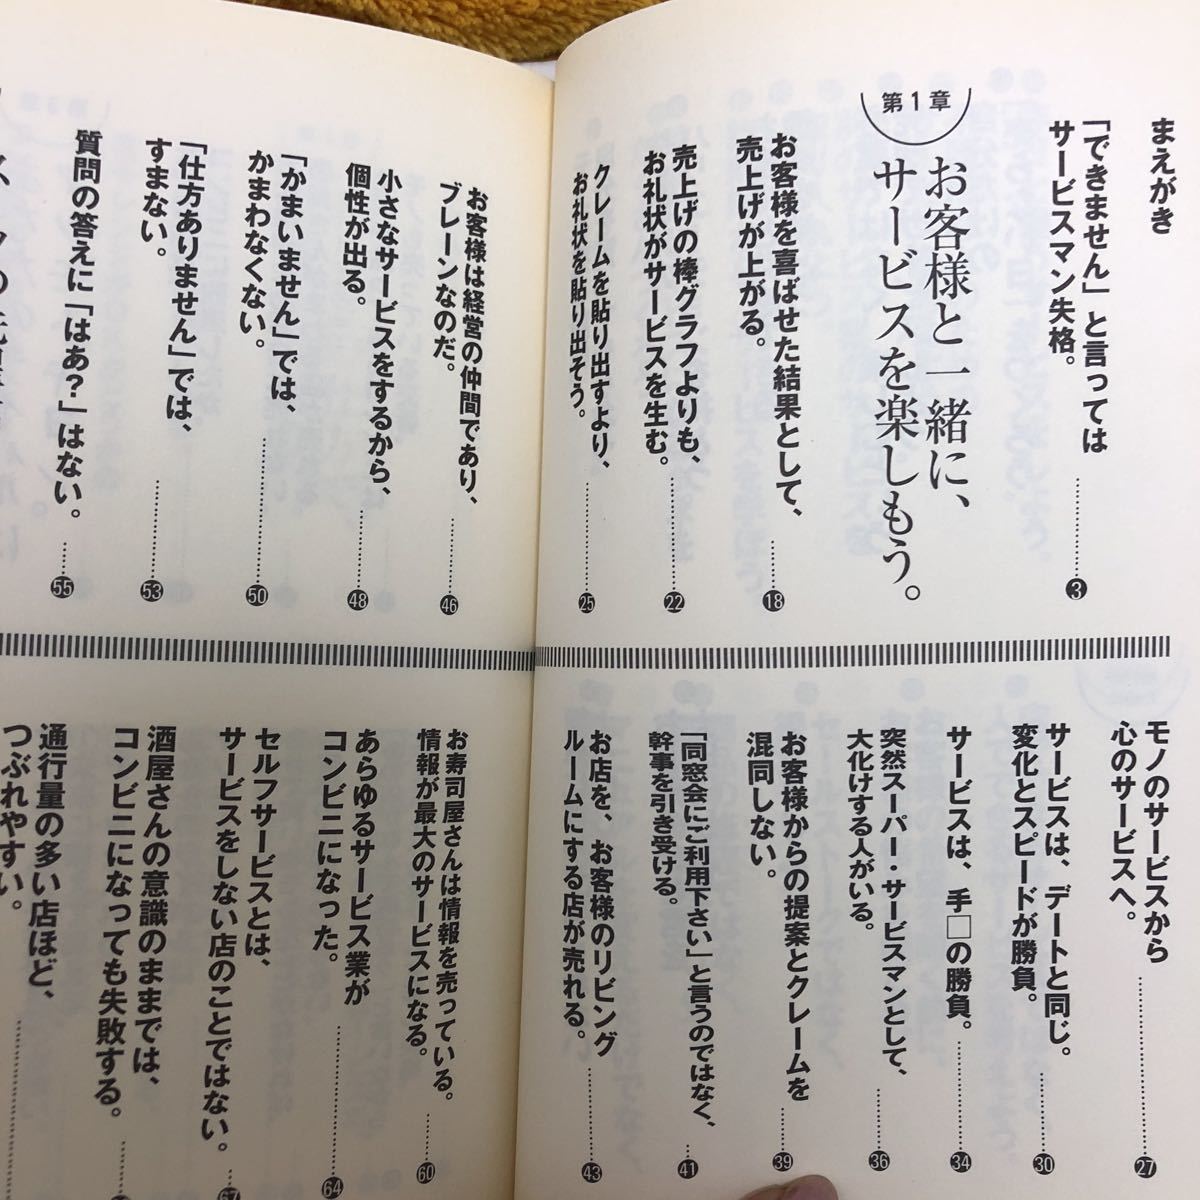 まえがき
「できません」と言っては
サービスマン失格。
3
第1章
お客様と一緒に、
サービスを楽しもう。
お客様を喜ばせた結果として、
売上げが上がる。
18
売上げの棒グラフよりも、
お礼状がサービスを生む。
22
クレームを貼り出すより、
お礼状を貼り出そう。
25
モノのサービスから
心のサービスへ。
27
サービスは、デートと同じ。
変化とスピードが勝負。
30
サービスは、手□の勝負。
34
突然スーパー・サービスマンとして、
大化けする人がいる。
36
お客様からの提案とクレームを
混同しない。
39
「同窓会にご利用下さい」と言うのではなく、
幹事を引き受ける。
41
お店を、お客様のリビング
ルームにする店が売れる。
43
お客様は経営の仲間であり、
ブレーンなのだ。
46
小さなサービスをするから、
個性が出る。
48
「かまいません」では、
かまわなくない。
50
「仕方ありません」では、
すまない。
53
質問の答えに「はあ?」はない。
55
お寿司屋さんは情報を売っている。
情報が最大のサービスになる。
60
あらゆるサービス業が
コンビニになった。
64
セルフサービスとは、
サービスをしない店のことではない。
67
酒屋さんの意識のままでは、
コンビニになっても失敗する。
通行量の多い店ほど、
つぶれやすい。